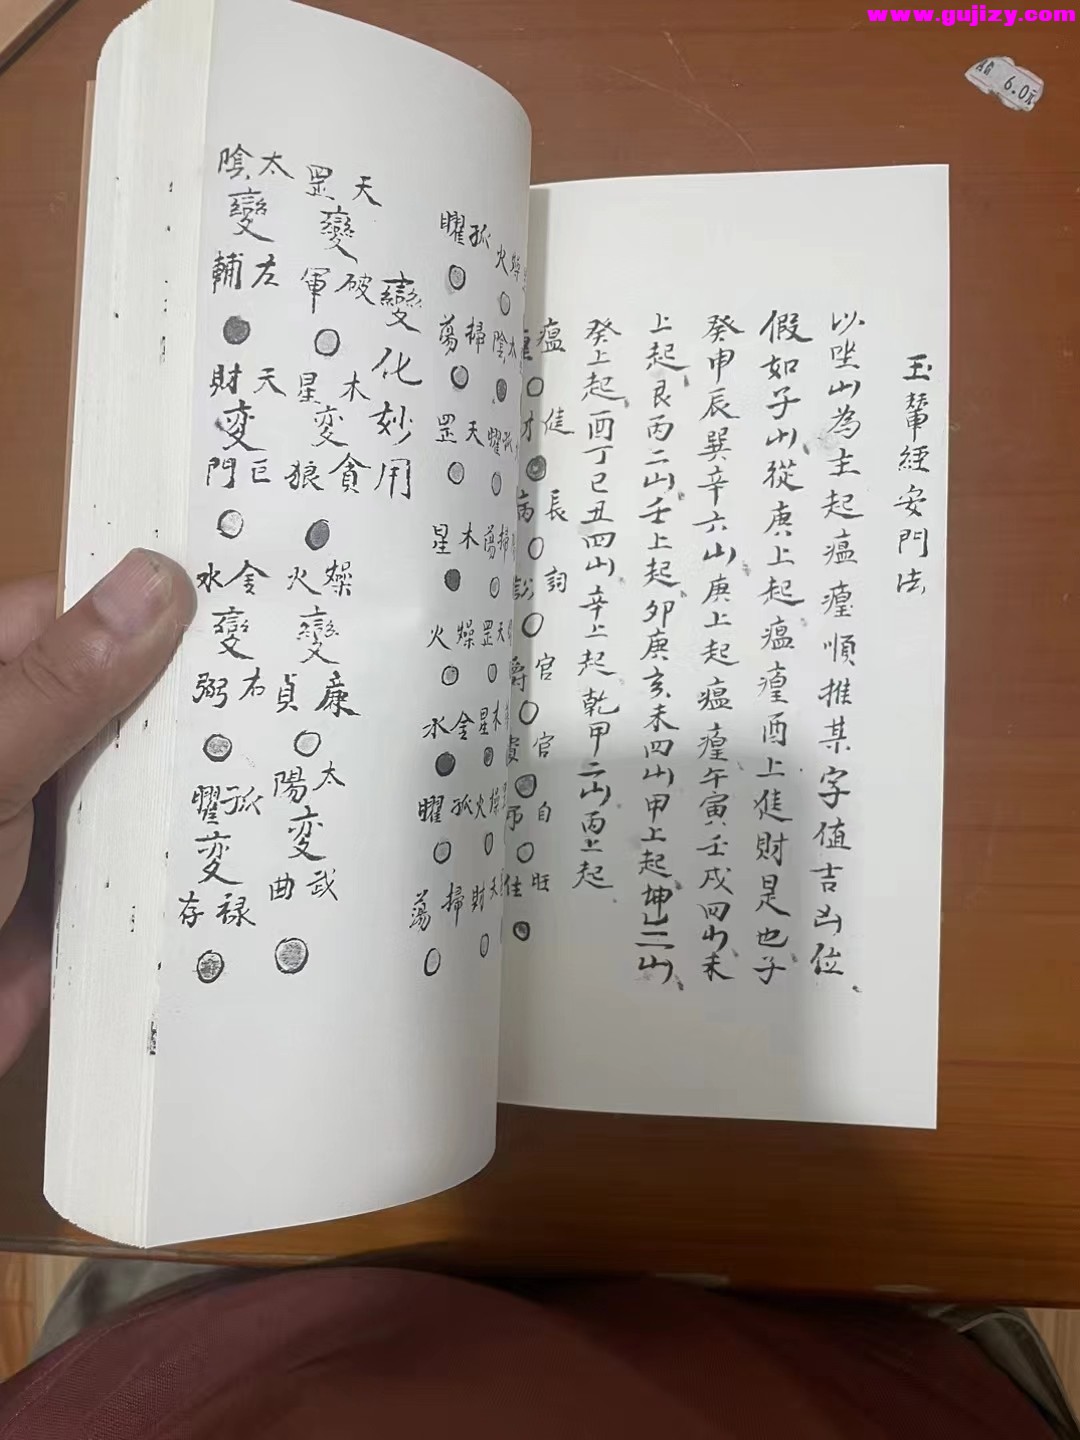 www.gujizy.com
AG 6.0元
玉輦經安門法
以坐山為主起瘟𤶊順推某字值吉凶位
假如子山從庚上起瘟𤶊酉上進財是也子
癸申辰巽辛六山庚上起瘟𤶊午寅壬戌四山未
上起艮丙二山壬上起卯庚亥未四山甲上起坤乙二山
癸上起酉丁巳丑四山辛上起乾甲二山丙上起
瘟
進
長
詞
官
官
自
旺
孤曜
掃蕩
天罡
木星
燥火
金水
孤曜
掃蕩
變化妙用
天罡變破軍
木星变貪狼
燥火變廉貞
太陽变武曲
太陰變左輔
天財变巨門
金水變右弼
孤曜变禄存